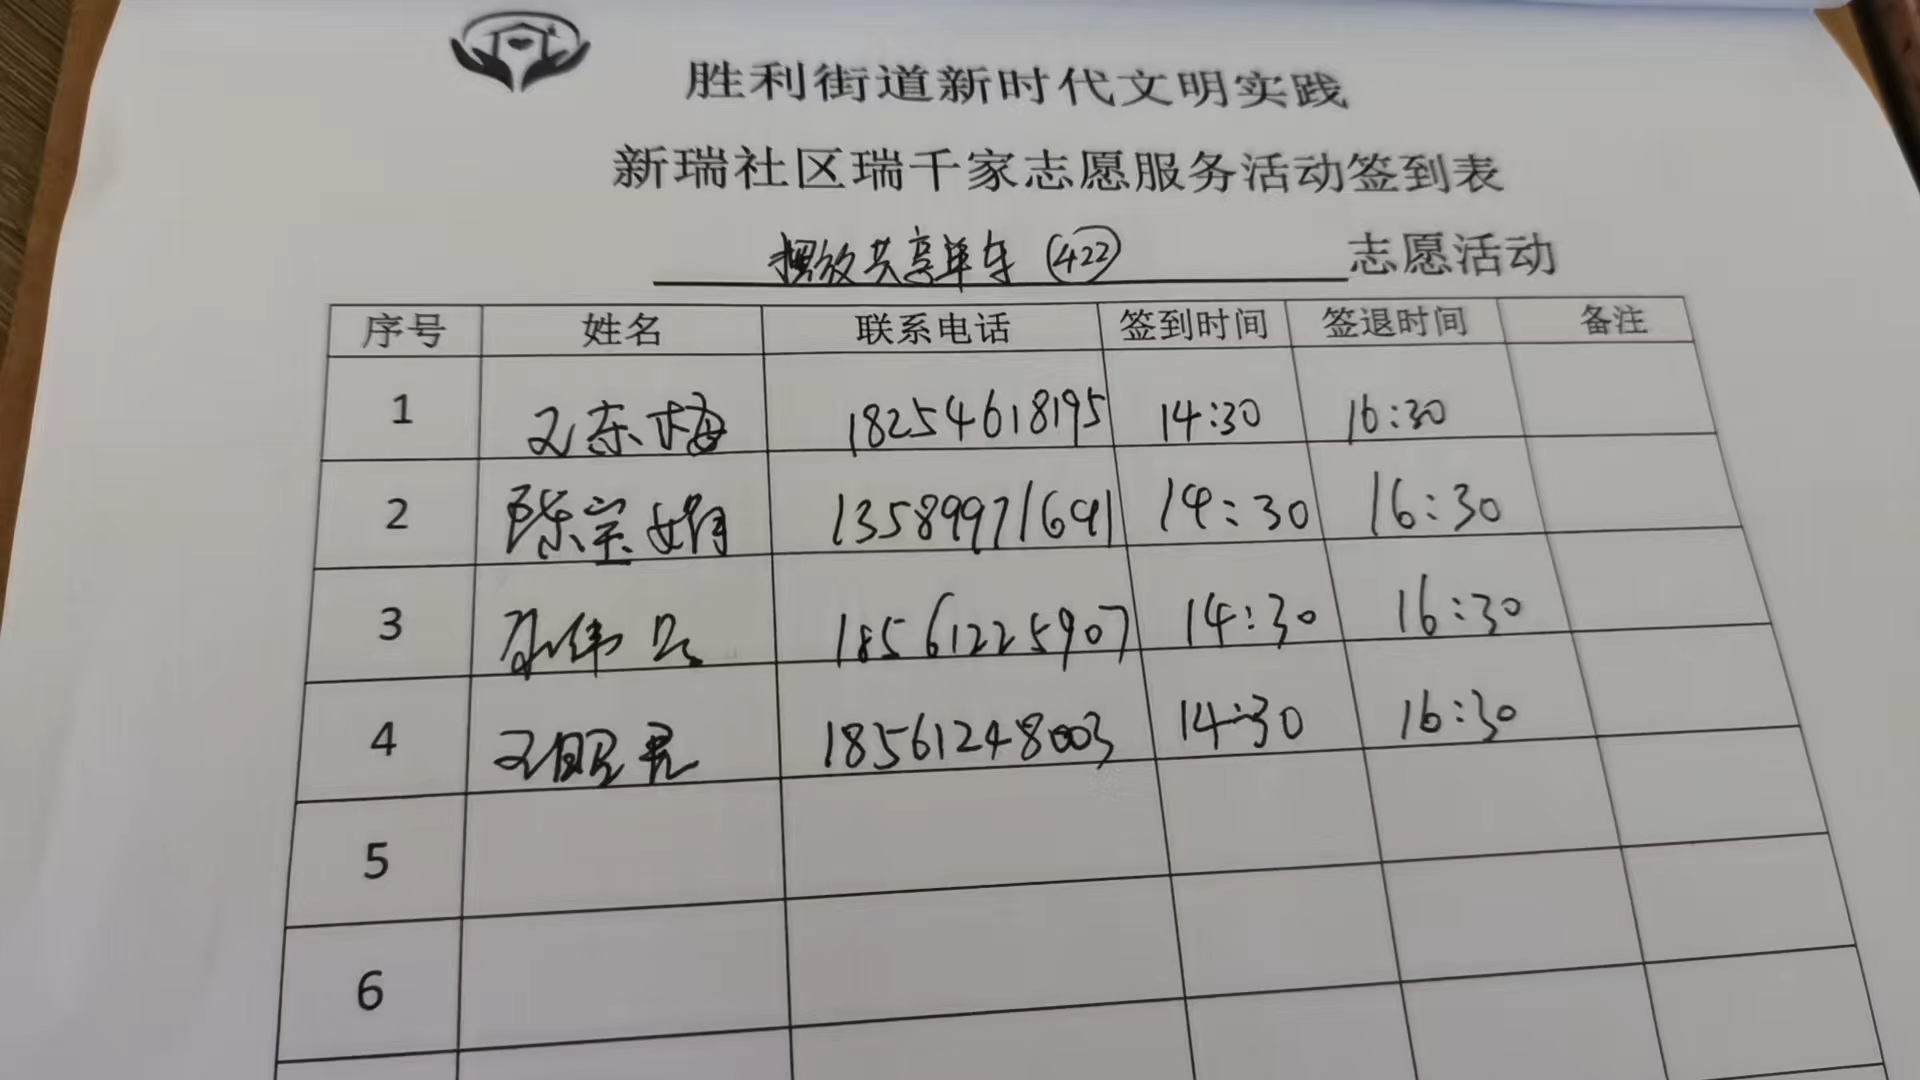 胜利街道新时代文明实践
新瑞社区瑞千家志愿服务活动签到表
摆放共享单车 (422) 志愿活动
序号 姓名 联系电话 签到时间 签退时间 备注
1 王东梅 18254618195 14:30 16:30
2 陈宝娟 13589971691 14:30 16:30
3 18561225907 14:30 16:30
4 18561248003 14:30 16:30
5
6